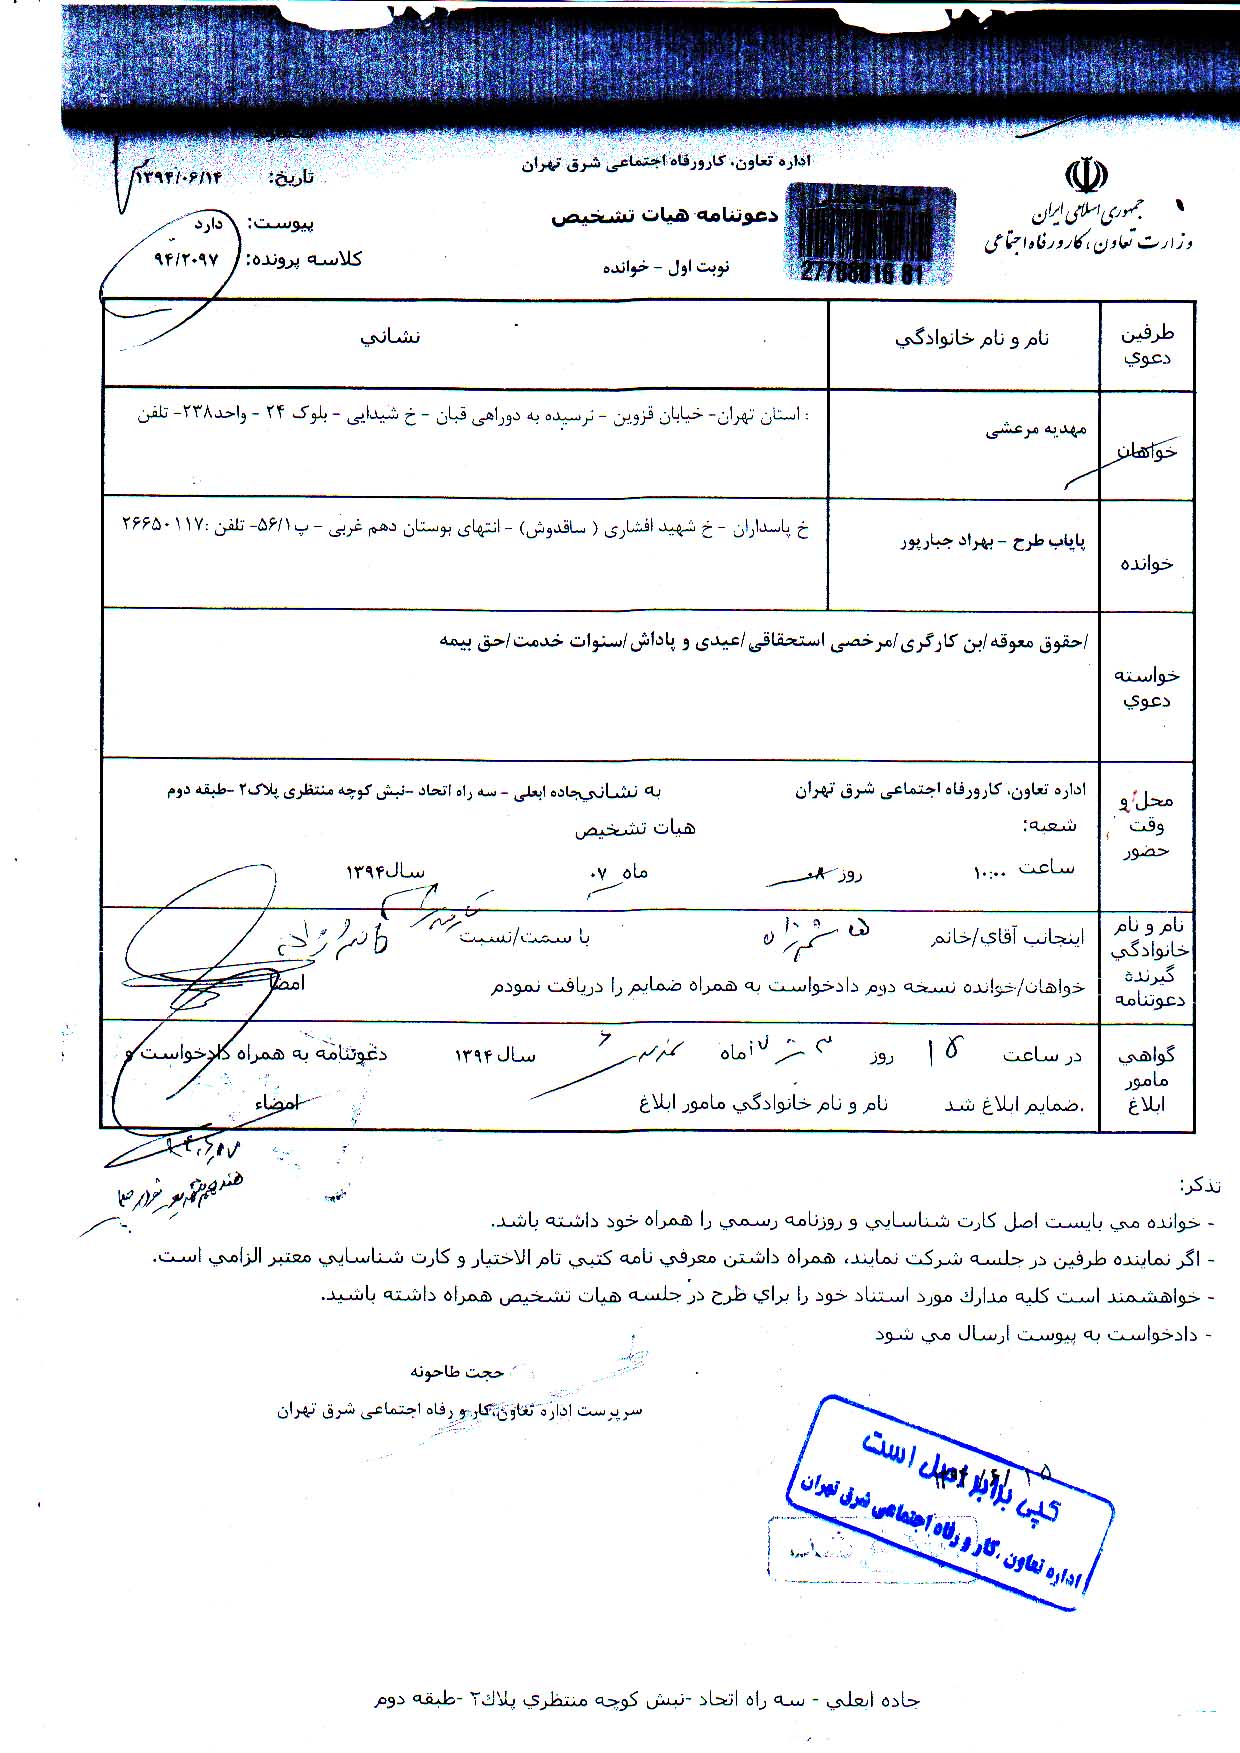 جمهوری اسلامی ایران
وزارت تعاون، کار و رفاه اجتماعی
اداره تعاون، کارورفاه اجتماعی شرق تهران
دعوتنامه هیات تشخیص
نوبت اول - خوانده
تاریخ: ۱۳۹۴/۰۶/۱۴
پیوست: دارد
کلاسه پرونده: ۹۴/۲۰۹۷
طرفین دعوي
نام و نام خانوادگي
نشاني
خواهان
مهدیه مرعشی
: استان تهران- خیابان قزوین - نرسیده به دوراهی قبان - خ شیدایی - بلوک ۲۴ - واحد۲۳۸- تلفن
خوانده
پایاب طرح - بهراد جبارپور
خ پاسداران - خ شهید افشاری ( ساقدوش) - انتهای بوستان دهم غربی - پ۵۶/۱- تلفن :۲۶۶۵۰۱۱۷
خواسته دعوي
/حقوق معوقه/بن کارگری/مرخصی استحقاقی/عیدی و پاداش/سنوات خدمت/حق بیمه
محل و وقت حضور
اداره تعاون، کارورفاه اجتماعی شرق تهران به نشاني جاده ابعلی - سه راه اتحاد -نبش کوچه منتظری پلاک۲ -طبقه دوم
شعبه: هیات تشخیص
ساعت ۱۰:۰۰ روز ۰۸ ماه ۰۷ سال۱۳۹۴
نام و نام خانوادگي گیرنده دعوتنامه
اینجانب آقاي/خانم با سمت/نسبت
خواهان/خوانده نسخه دوم دادخواست به همراه ضمایم را دریافت نمودم امضا
گواهي مامور ابلاغ
در ساعت ۱۵ روز ماه سال ۱۳۹۴ دعوتنامه به همراه دادخواست و
.ضمایم ابلاغ شد نام و نام خانوادگي مامور ابلاغ امضاء
تذکر:
- خوانده مي بایست اصل کارت شناسایي و روزنامه رسمي را همراه خود داشته باشد.
- اگر نماینده طرفین در جلسه شرکت نمایند، همراه داشتن معرفي نامه کتبي تام الاختیار و کارت شناسایي معتبر الزامي است.
- خواهشمند است کلیه مدارك مورد استناد خود را براي طرح در جلسه هیات تشخیص همراه داشته باشید.
- دادخواست به پیوست ارسال مي شود
حجت طاحونه
سرپرست اداره تعاون،کار و رفاه اجتماعی شرق تهران
کپی برابر اصل است
اداره تعاون ،کار و رفاه اجتماعی شرق تهران
جاده ابعلي - سه راه اتحاد -نبش کوچه منتظري پلاك۲ -طبقه دوم